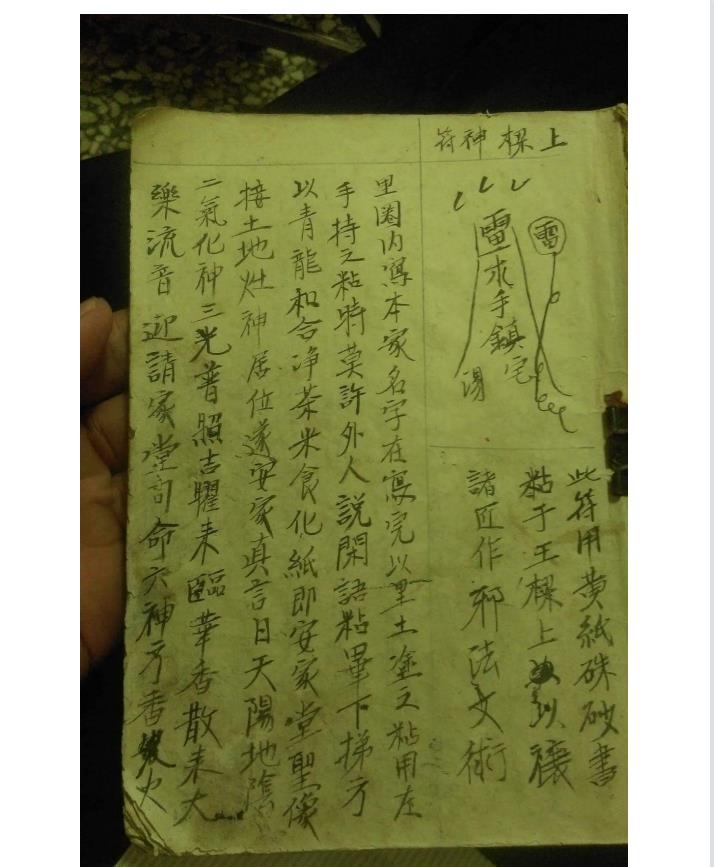 上樑神符
雷
雷求手鎮宅
湯
此符用黄紙硃砂書
粘于王樑上以禳
諸匠作邪法文術
里圈内寫本家名字在寫完以里土塗之粘用左
手持之粘時莫許外人説閑語粘畢下梯方
以青龍和合净茶米食化紙即安家堂聖像
接土地灶神居位遂安家真言日天陽地陰
二氣化神三光普照吉耀来臨華香散来大
樂流音迎請家堂司命六神方香火